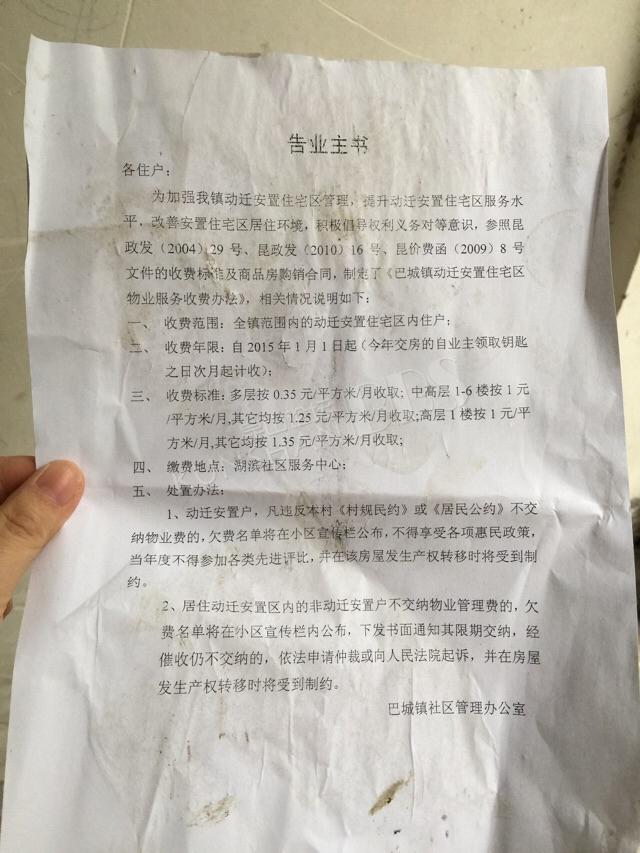 告业主书
各住户：
为加强我镇动迁安置住宅区管理，提升动迁安置住宅区服务水
平，改善安置住宅区居住环境，积极倡导权利义务对等意识，参照昆
政发（2004）29 号、昆政发（2010）16 号、昆价费函（2009）8 号
文件的收费标准及商品房购销合同，制定了《巴城镇动迁安置住宅区
物业服务收费办法》，相关情况说明如下：
一、 收费范围：全镇范围内的动迁安置住宅区内住户；
二、 收费年限：自 2015 年 1 月 1 日起（今年交房的自业主领取钥匙
之日次月起计收）；
三、 收费标准：多层按 0.35 元/平方米/月收取; 中高层 1-6 楼按 1 元
/平方米/月,其它均按 1.25 元/平方米/月收取;高层 1 楼按 1 元/平
方米/月,其它均按 1.35 元/平方米/月收取;
四、 缴费地点：湖滨社区服务中心；
五、 处置办法：
1、动迁安置户，凡违反本村《村规民约》或《居民公约》不交
纳物业费的，欠费名单将在小区宣传栏公布，不得享受各项惠民政策，
当年度不得参加各类先进评比，并在该房屋发生产权转移时将受到制
约。
2、居住动迁安置区内的非动迁安置户不交纳物业管理费的，欠
费名单将在小区宣传栏内公布，下发书面通知其限期交纳，经
催收仍不交纳的，依法申请仲裁或向人民法院起诉，并在房屋
发生产权转移时将受到制约。
巴城镇社区管理办公室